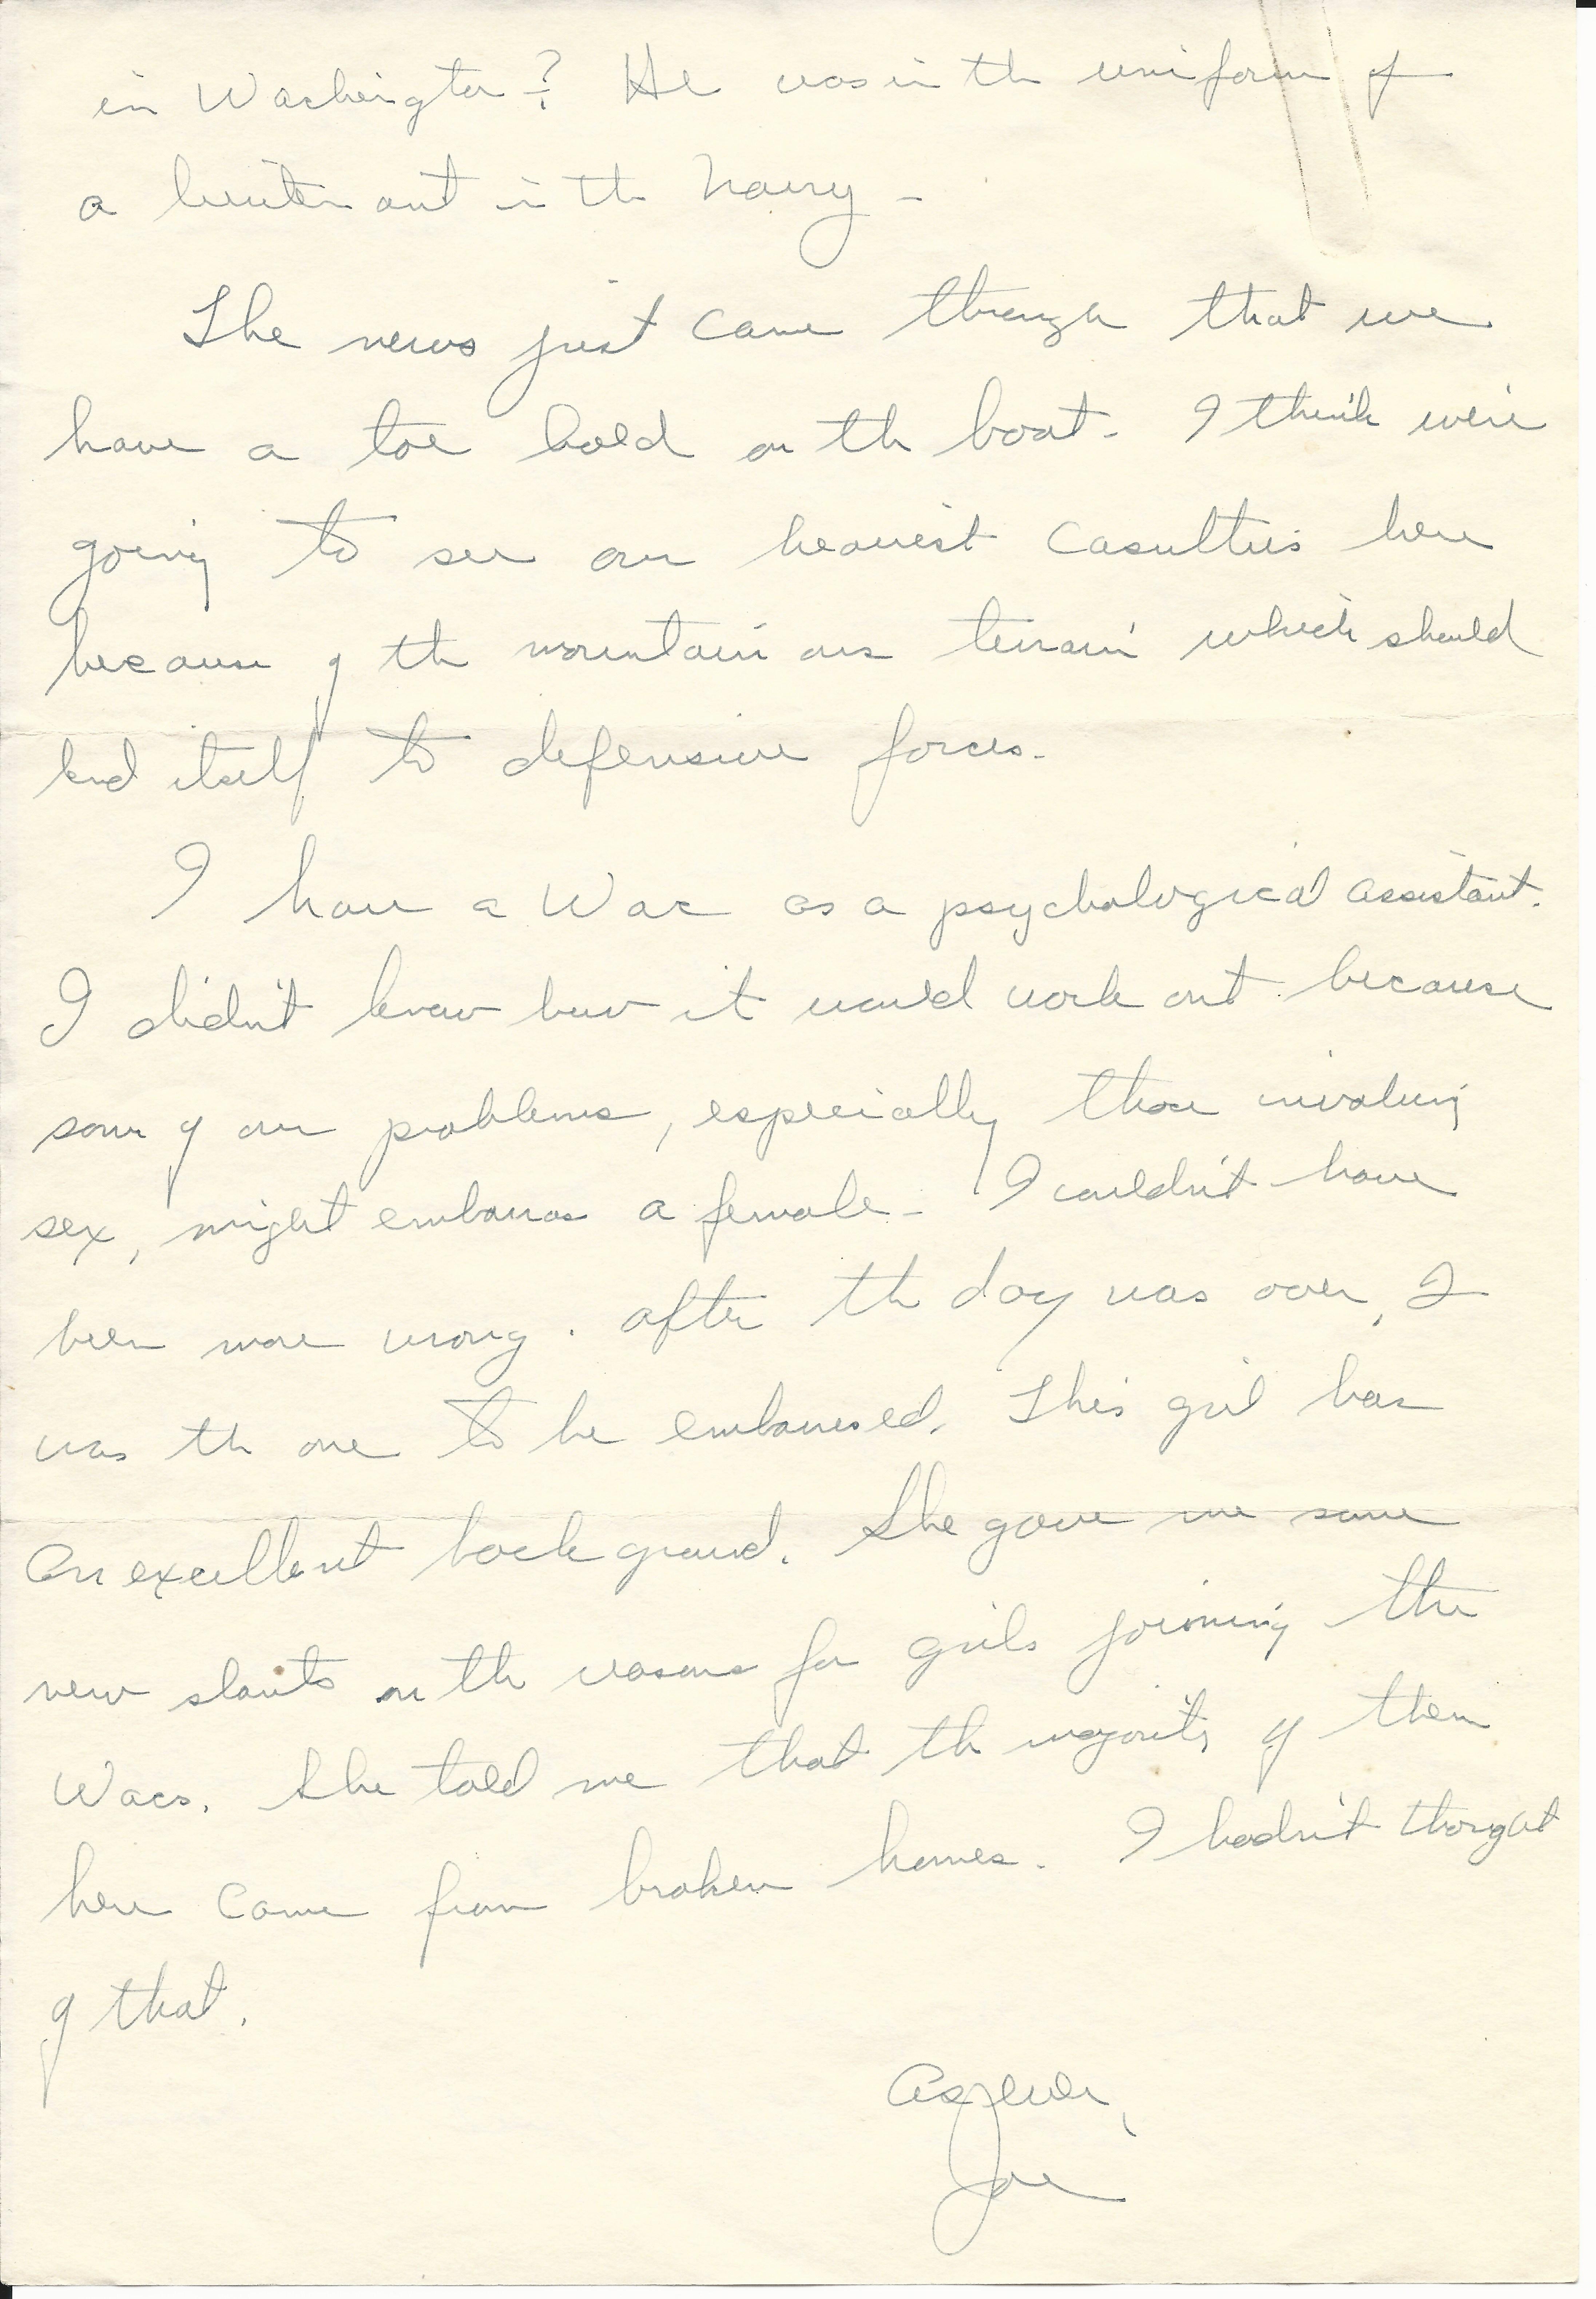 in Washington? He was in the uniform of
a lieutenant in the Navy -
The news just came through that we
have a toe hold on the boot. I think we're
going to see our heaviest casulties here
because of the mountainous terrain which should
lend itself to defensive forces.
I have a Wac as a psychological assistant.
I didn't know how it would work out because
some of our problems, especially those involving
sex, might embarras a female - I couldn't have
been more wrong. After the day was over, I
was the one to be embarrased. This girl has
an excellent background. She gave me some
new slants on the reasons for girls joining the
Wacs. She told me that the majority of them
here came from broken homes. I hadn't thought
of that.
As ever,
Joe